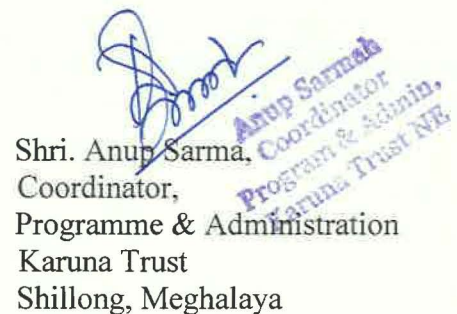 Anup Sarmah
Coordinator
Program & Admin,
Karuna Trust NE
Shri. Anup Sarma,
Coordinator,
Programme & Administration
Karuna Trust
Shillong, Meghalaya